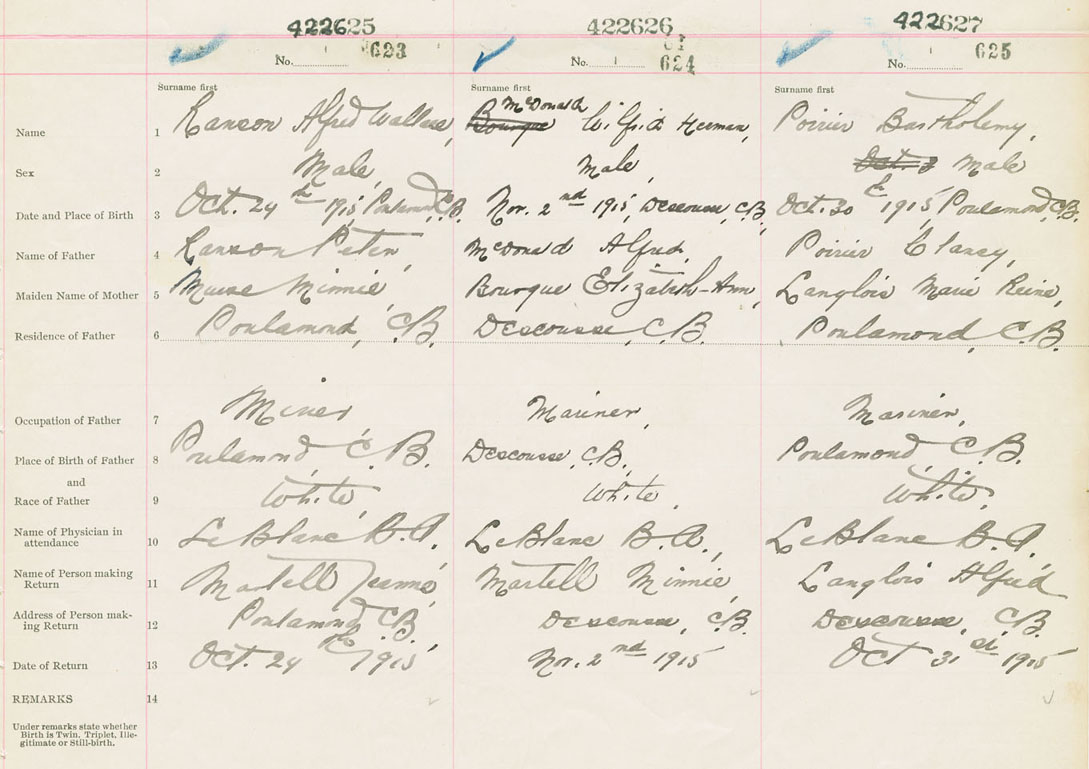 422625 422626 422627
No. 1 623 No. 1 624 No. 1 625
Surname first Surname first Surname first
McDonald
Name 1 Ranson Alfred Wallace, Bourque Wilfrid Herman, Poirier Bartholemy,
Sex 2 Male, Male, Oct. 3 Male
Date and Place of Birth 3 Oct. 24th 1915, Poulamond, C.B. Nov. 2nd 1915, Descousse, C.B, Oct. 30th 1915 Poulamond, C.B.
Name of Father 4 Ranson Peter, McDonald Alfred, Poirier Clancy,
Maiden Name of Mother 5 Muise Minnie, Bourque Elizabeth-Ann, Langlois Marie Reine,
Residence of Father 6 Poulamond, C.B. Descousse, C.B. Poulamond, C.B.
Occupation of Father 7 Miner, Mariner, Mariner,
Place of Birth of Father 8 Poulamond, C.B. Descousse, C.B., Poulamond, C.B.
and
Race of Father 9 White, White, White,
Name of Physician in
attendance 10 LeBlanc B.A, LeBlanc B.A., LeBlanc B.A.
Name of Person making
Return 11 Martell, Martell Minnie, Langlois Alfred
Address of Person mak-
ing Return 12 Poulamond C.B, Descousse, C.B. Descousse, C.B.
Date of Return 13 Oct. 24th 1915 Nov. 2nd 1915 Oct 31st 1915
REMARKS 14
Under remarks state whether
Birth is Twin, Triplet, Ille-
gitimate or Still-birth.